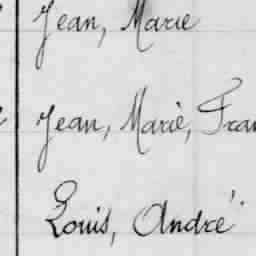 Jean, Marie
Jean, Marie, Fran
Louis, André